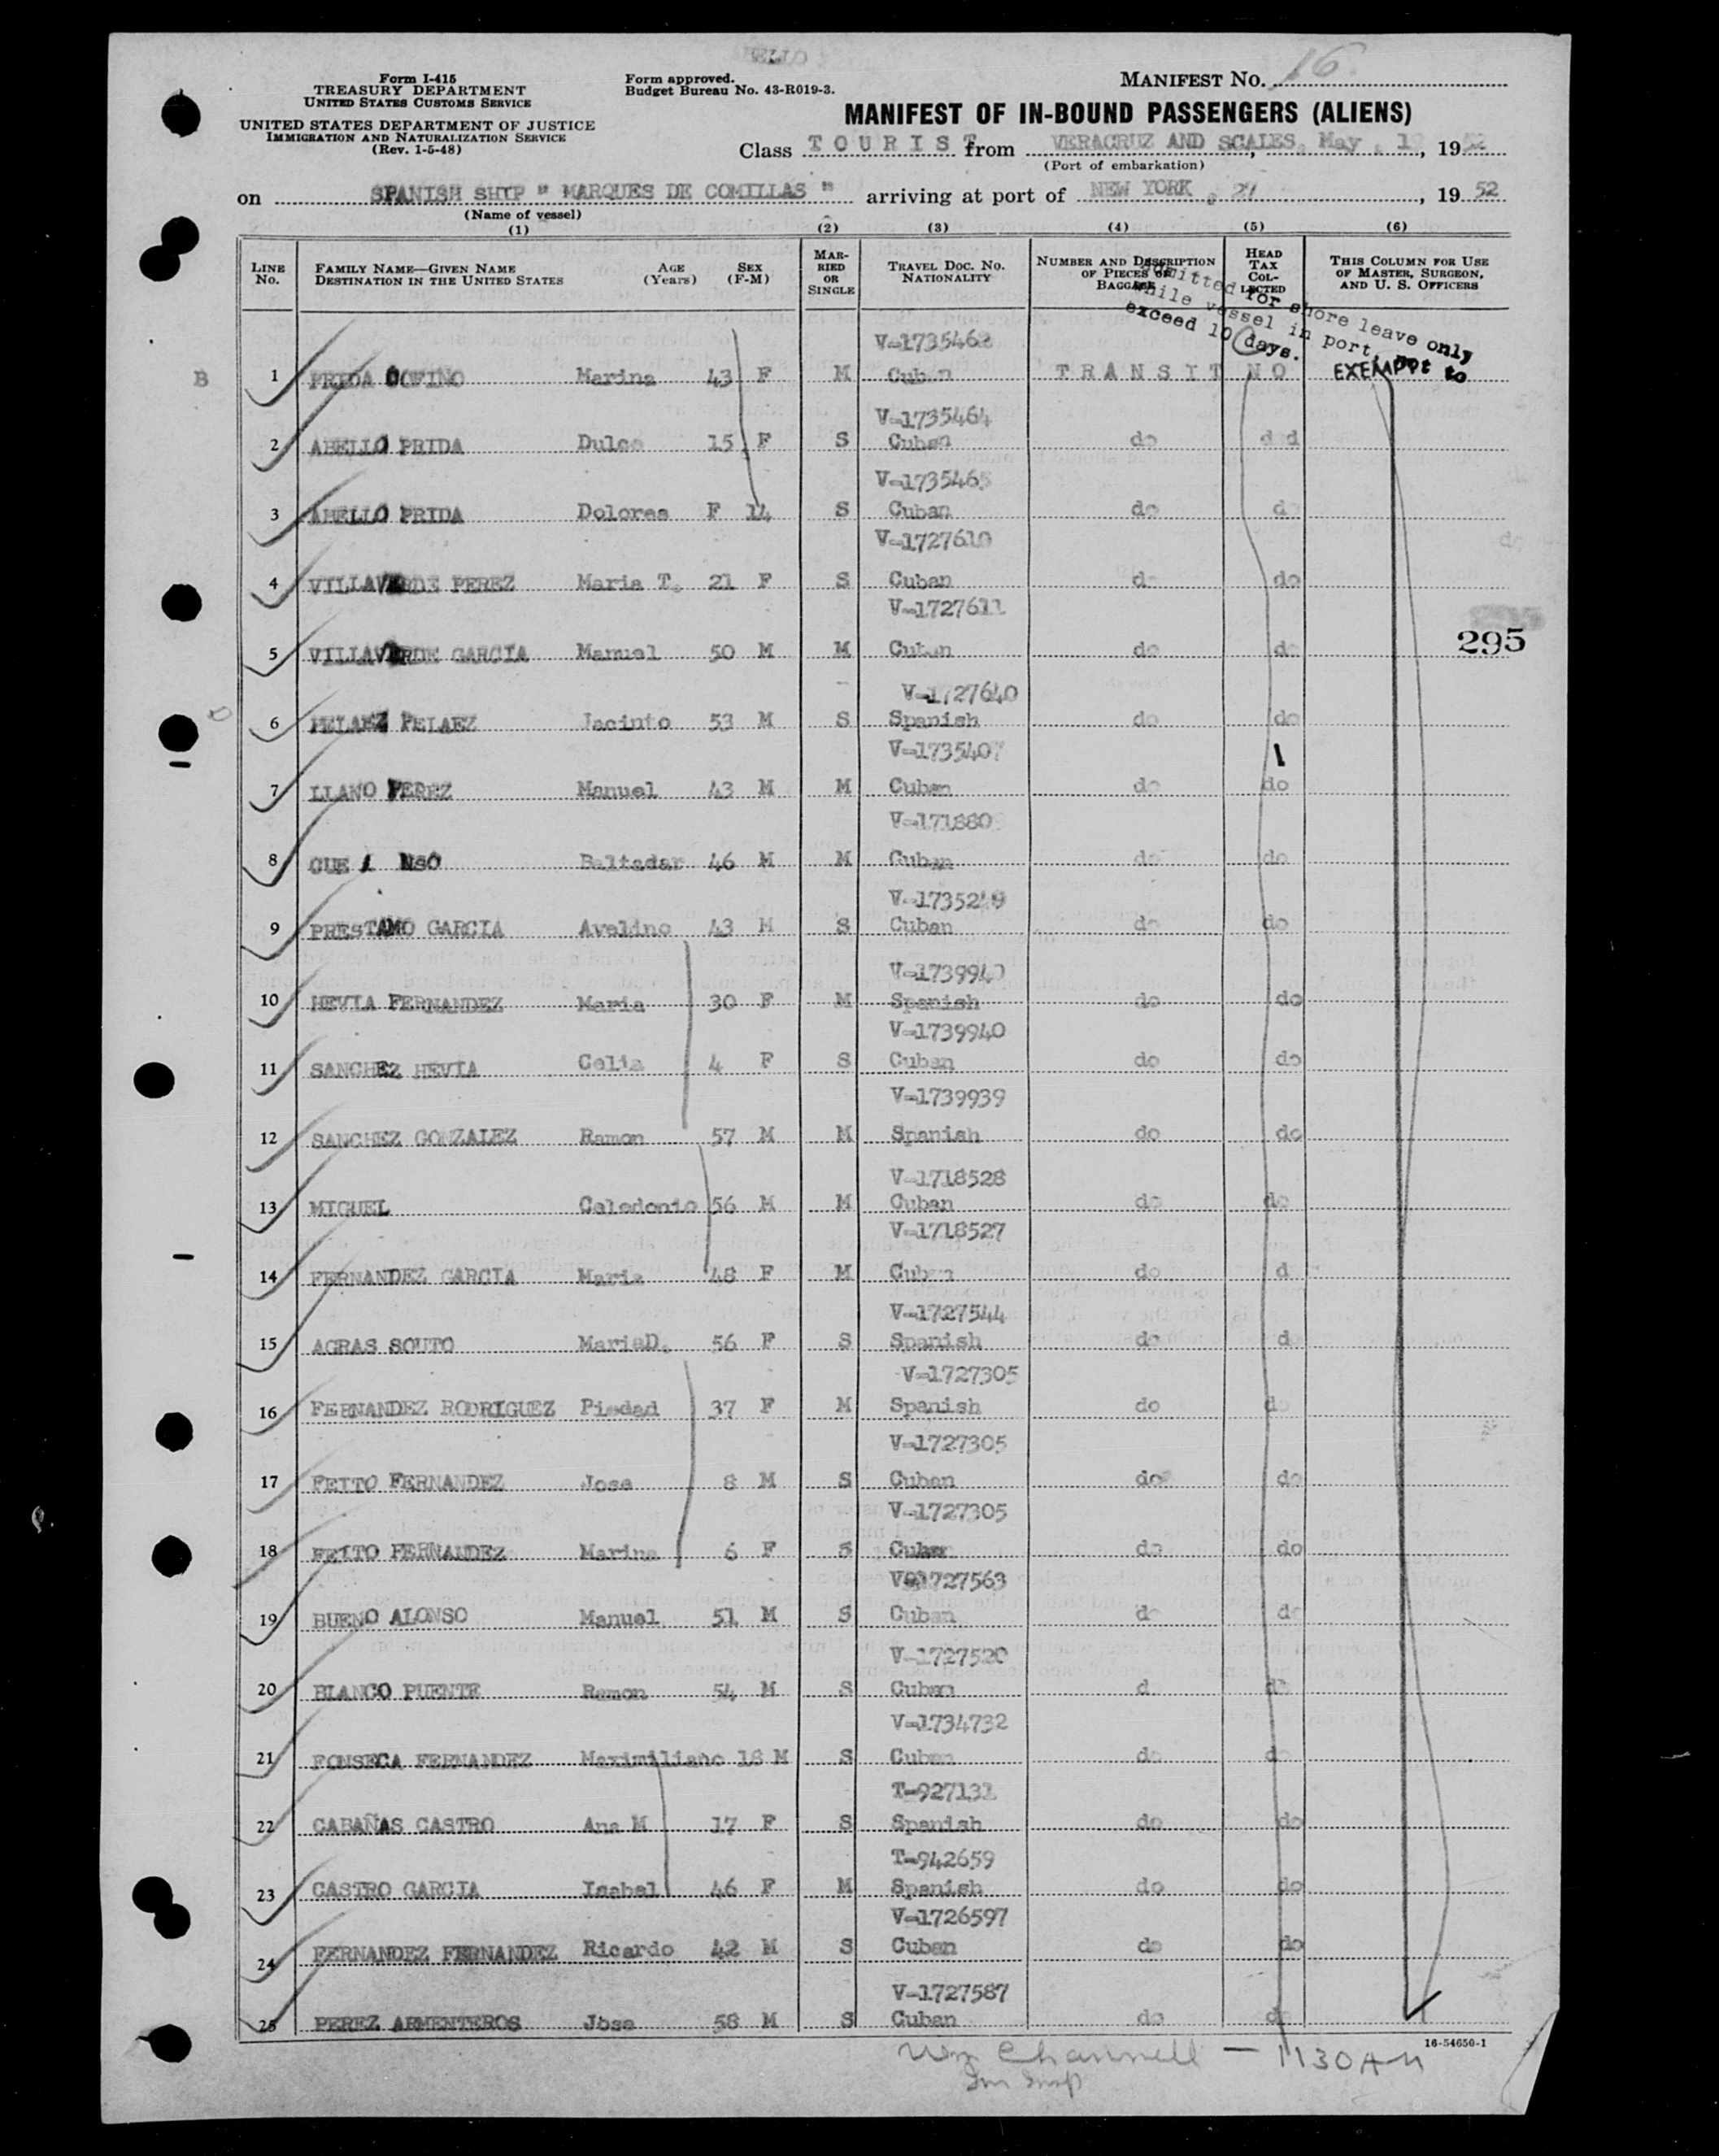 Form I-415
TREASURY DEPARTMENT
UNITED STATES CUSTOMS SERVICE
UNITED STATES DEPARTMENT OF JUSTICE
IMMIGRATION AND NATURALIZATION SERVICE
(Rev. 1-5-48)
Form approved.
Budget Bureau No. 43-R019-3.
MANIFEST No. 16
MANIFEST OF IN-BOUND PASSENGERS (ALIENS)
Class TOURIST from VERACRUZ AND SCALES, May , 1952
(Port of embarkation)
on SPANISH SHIP " MARQUES DE COMILLAS " arriving at port of NEW YORK, 27, 1952
(Name of vessel)
(1) (2) (3) (4) (5) (6)
LINE No. FAMILY NAME—GIVEN NAME DESTINATION IN THE UNITED STATES AGE (Years) SEX (F-M) MARRIED OR SINGLE TRAVEL DOC. No. NATIONALITY NUMBER AND DESCRIPTION OF PIECES OF BAGGAGE HEAD TAX COLLECTED THIS COLUMN FOR USE OF MASTER, SURGEON, AND U. S. OFFICERS
Admitted for shore leave only
while vessel in port, not to
exceed 10 days.
V-1735462
B 1 PRIDA COFINO Marina 43 F M Cuban TRANSIT NO EXEMPT
V-1735464
2 ABELLO PRIDA Dulce 15 F S Cuban do
V-1735465
3 ABELLO PRIDA Dolores F 14 S Cuban do
V-1727610
4 VILLAVERDE PEREZ Maria T. 21 F S Cuban do do
V-1727611
5 VILLAVERDE GARCIA Manuel 50 M M Cuban do do
295
V-1727640
6 PELAEZ PELAEZ Jacinto 53 M S Spanish do do
V-1735407
7 LLANO PEREZ Manuel 43 M M Cuban do do
V-171880
8 Baltadar 46 M M Cuban do do
9 PRESTAMO GARCIA Avelino 43 M S Cuban do do
V-1739940
10 HEVIA FERNANDEZ Maria 30 F M Spanish do do
V-1739940
11 SANCHEZ HEVIA Celia 4 F S Cuban do do
V-1739939
12 SANCHEZ GONZALEZ Ramon 57 M M Spanish do do
V-1718528
13 MIGUEL Celedonio 56 M M Cuban do do
V-1718527
14 FERNANDEZ GARCIA Maria 48 F M Cuban do d
V-1727544
15 AGRAS SOUTO MariaD. 56 F S Spanish do do
V-1727305
16 FERNANDEZ RODRIGUEZ Piedad 37 F M Spanish do do
V-1727305
17 FEITO FERNANDEZ Jose 8 M S Cuban do do
V-1727305
18 FEITO FERNANDEZ Marina 6 F S Cuban do do
V-1727563
19 BUENO ALONSO Manuel 51 M S Cuban do do
V-1727520
20 BLANCO PUENTE Ramon 54 M S Cuban d do
V-1734732
21 FONSECA FERNANDEZ Maximiliano 18 M S Cuban do do
T-927131
22 CABAÑAS CASTRO Ana M 17 F S Spanish do do
T-942659
23 CASTRO GARCIA Isabel 46 F M Spanish do do
V-1726597
24 FERNANDEZ FERNANDEZ Ricardo 42 M S Cuban do do
V-1727587
25 PEREZ ARMENTEROS Jose 58 M S Cuban do do
16-54650-1
Wm Channell — 1130 AM
Imm Insp